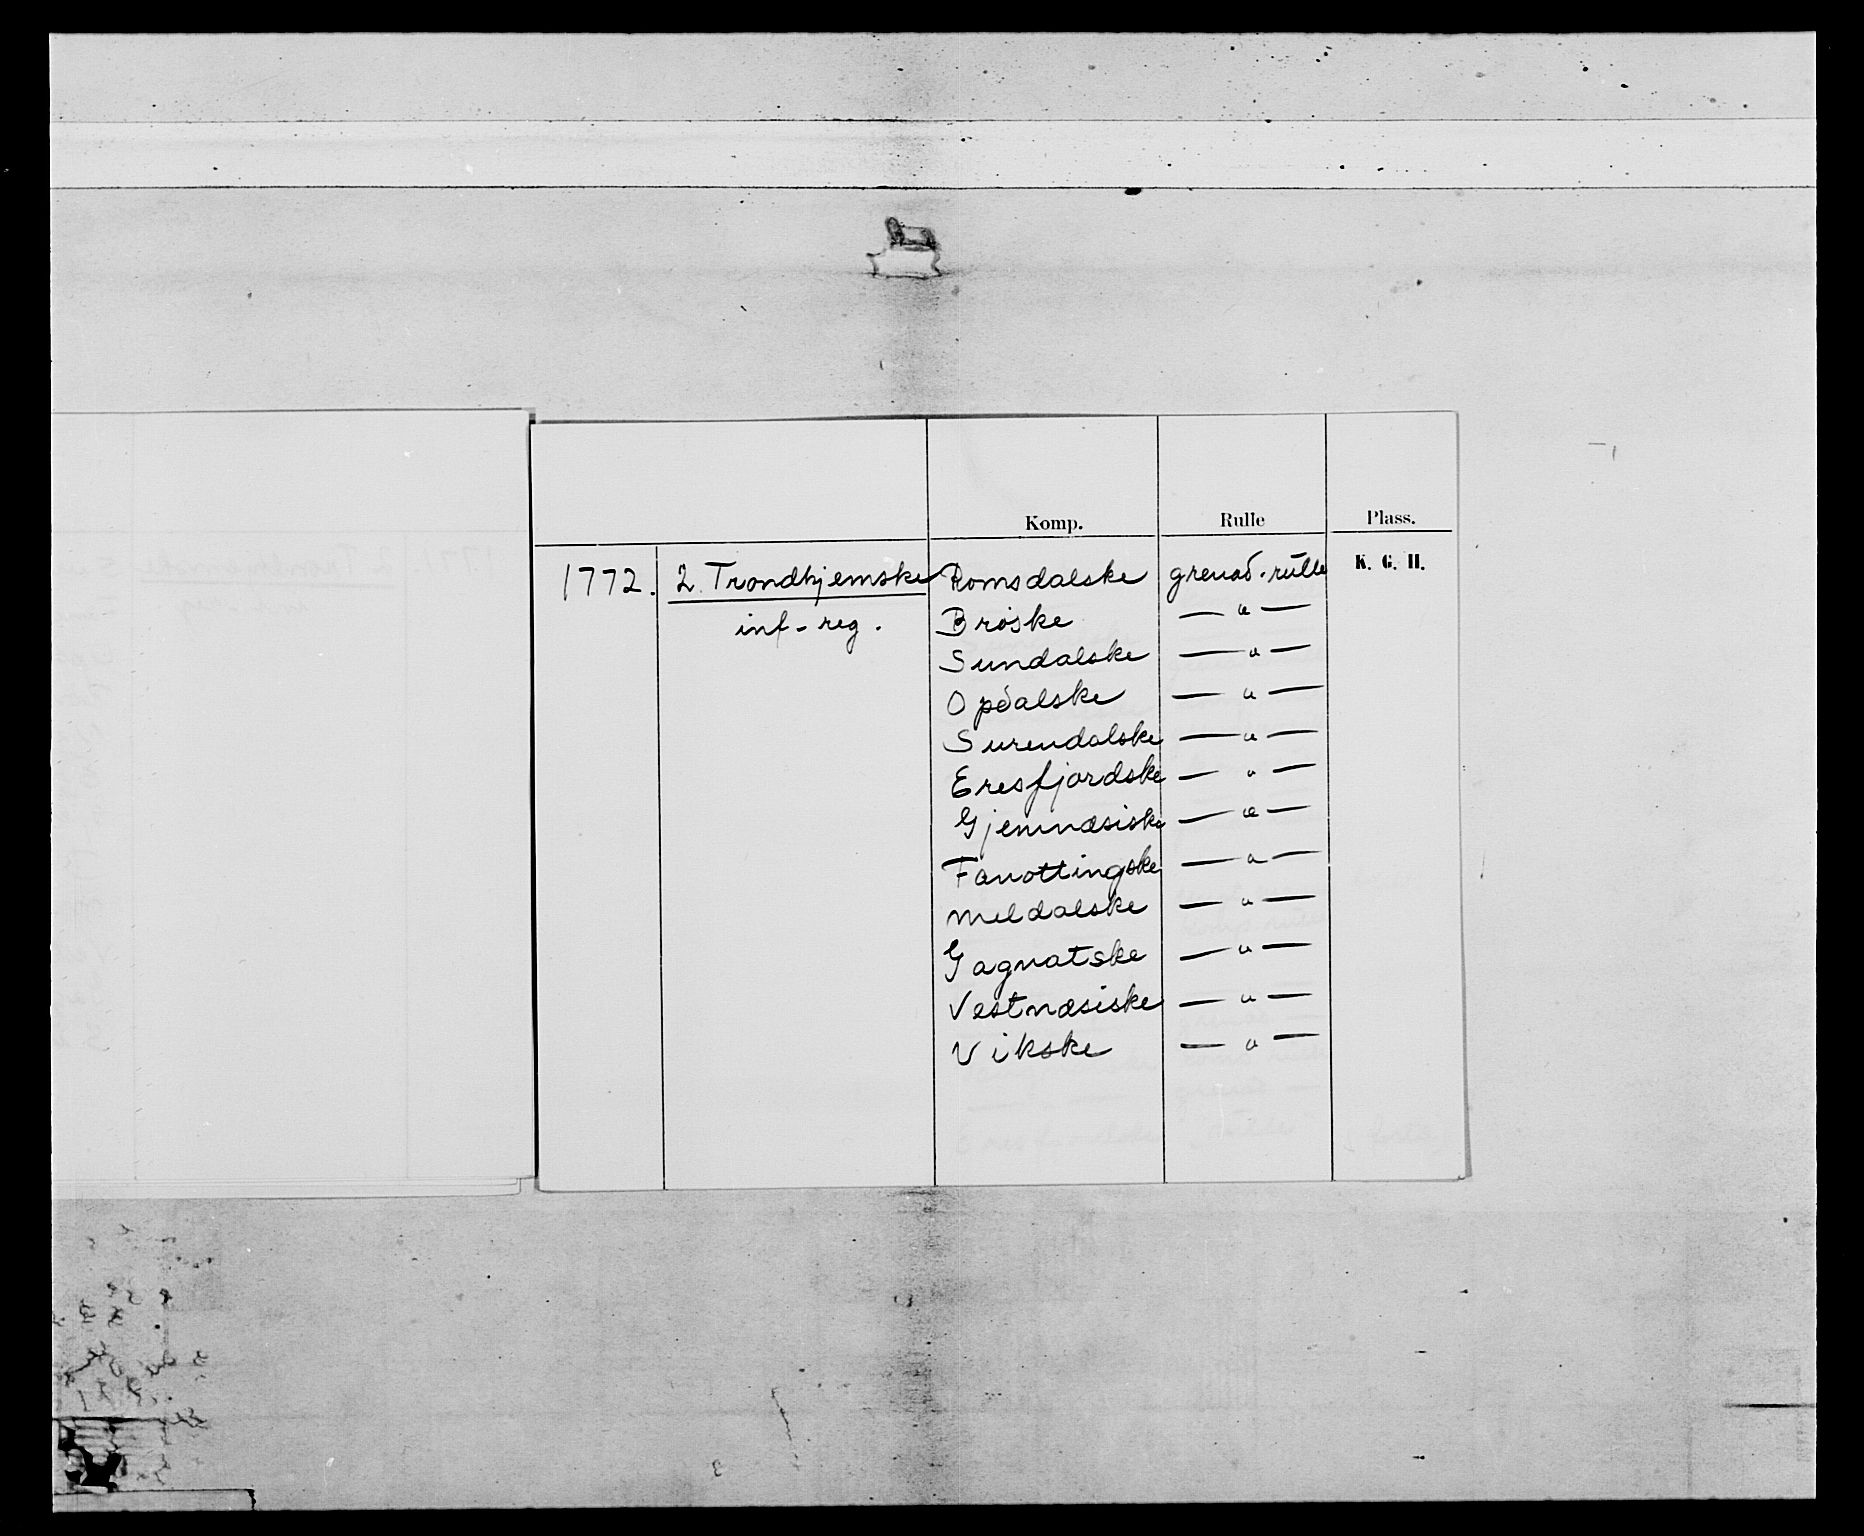 Komp. Rulle Plass.
1772. 2. Trondhjemske Romsdalske grenad.rulle K. G. H.
inf-reg. Brøske — " —
Sundalske — " —
Opdalske — " —
Surendalske — " —
Eresfjordske — " —
Gjemnæsiske — " —
Fanottingske — " —
Meldalske — " —
Gagnatske — " —
Vestnæsiske — " —
Vikske — " —